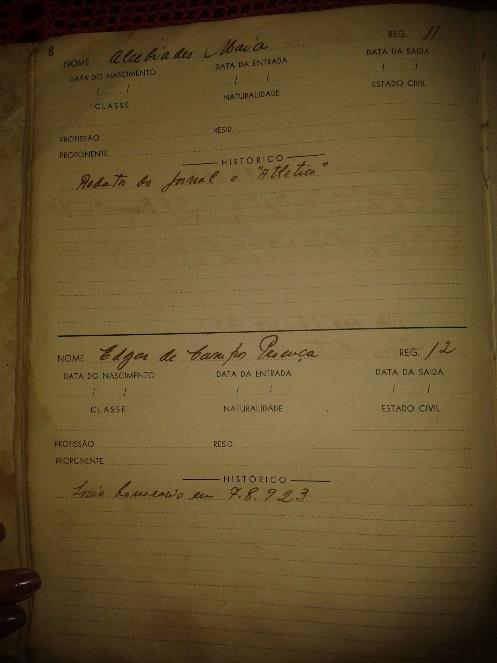 6
NOME Alcebiades Maia REG. 11
DATA DO NASCIMENTO DATA DA ENTRADA DATA DA SAÍDA
/ / / / / /
CLASSE NATURALIDADE ESTADO CIVIL
PROFISSÃO RESID.
PROPONENTE
HISTÓRICO
Redator do Jornal o "Atletico"
NOME Edgar de Campos Proença REG. 12
DATA DO NASCIMENTO DATA DA ENTRADA DATA DA SAÍDA
/ / / / / /
CLASSE NATURALIDADE ESTADO CIVIL
PROFISSÃO RESID.
PROPONENTE
HISTÓRICO
Socio honorario em 7.8.923